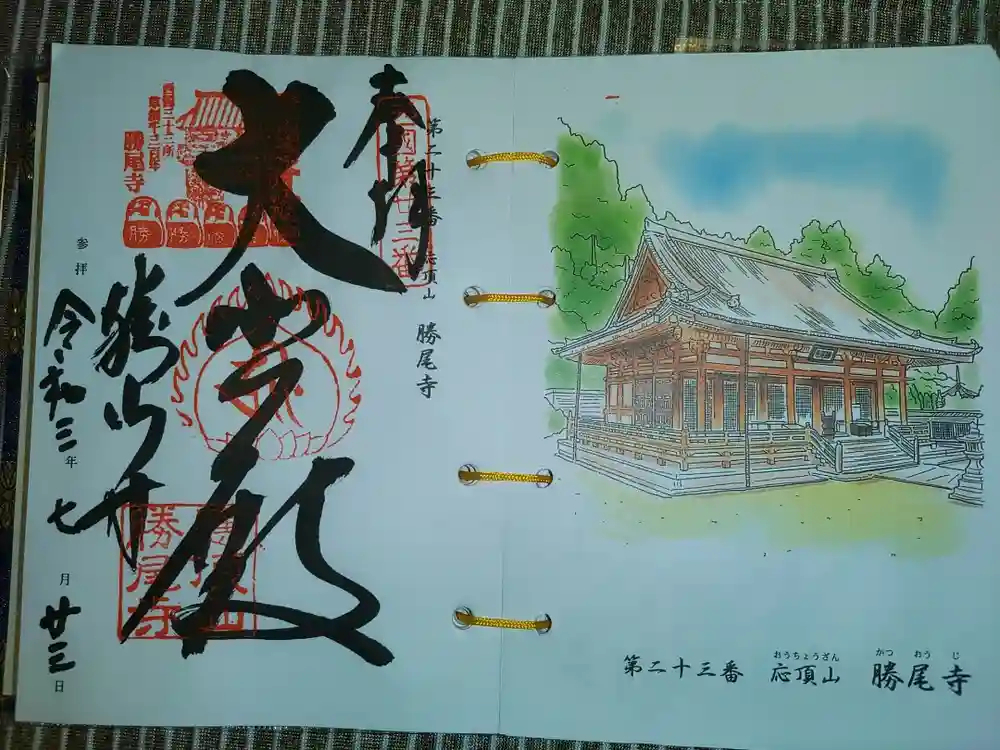 奉拝
西国第廿三番
第二十三番 応頂山 勝尾寺
大悲殿
西国三十三所
草創千三百年
勝尾寺
勝
勝
勝尾寺
勝尾寺
参拝 令和三年七月廿三日
第二十三番 応頂山 勝尾寺
おうちょうざん かつおうじ